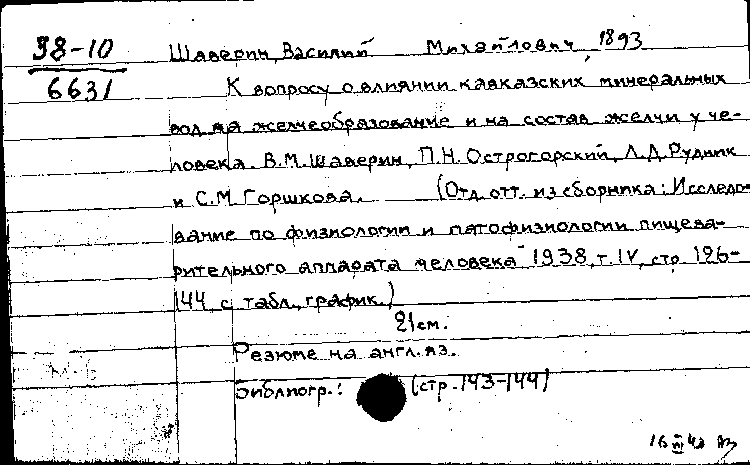 38-10
6631
Шаверин, Василий Михайлович, 1893
К вопросу о влиянии кавказских минеральных
вод на желчеобразование и на состав желчи у че-
ловека. В.М. Шаверин, П.Н. Острогорский, Л.Д. Рудник
и С.М Горшкова. (Отд. отт. из сборника: Исследо-
вание по физиологии и патофизиологии пищева-
рительного аппарата человека" 1938, т. IV, стр. 126-
144 с табл., график.)
21 см.
Резюме на англ. яз.
Библиогр.: (стр. 143-144)